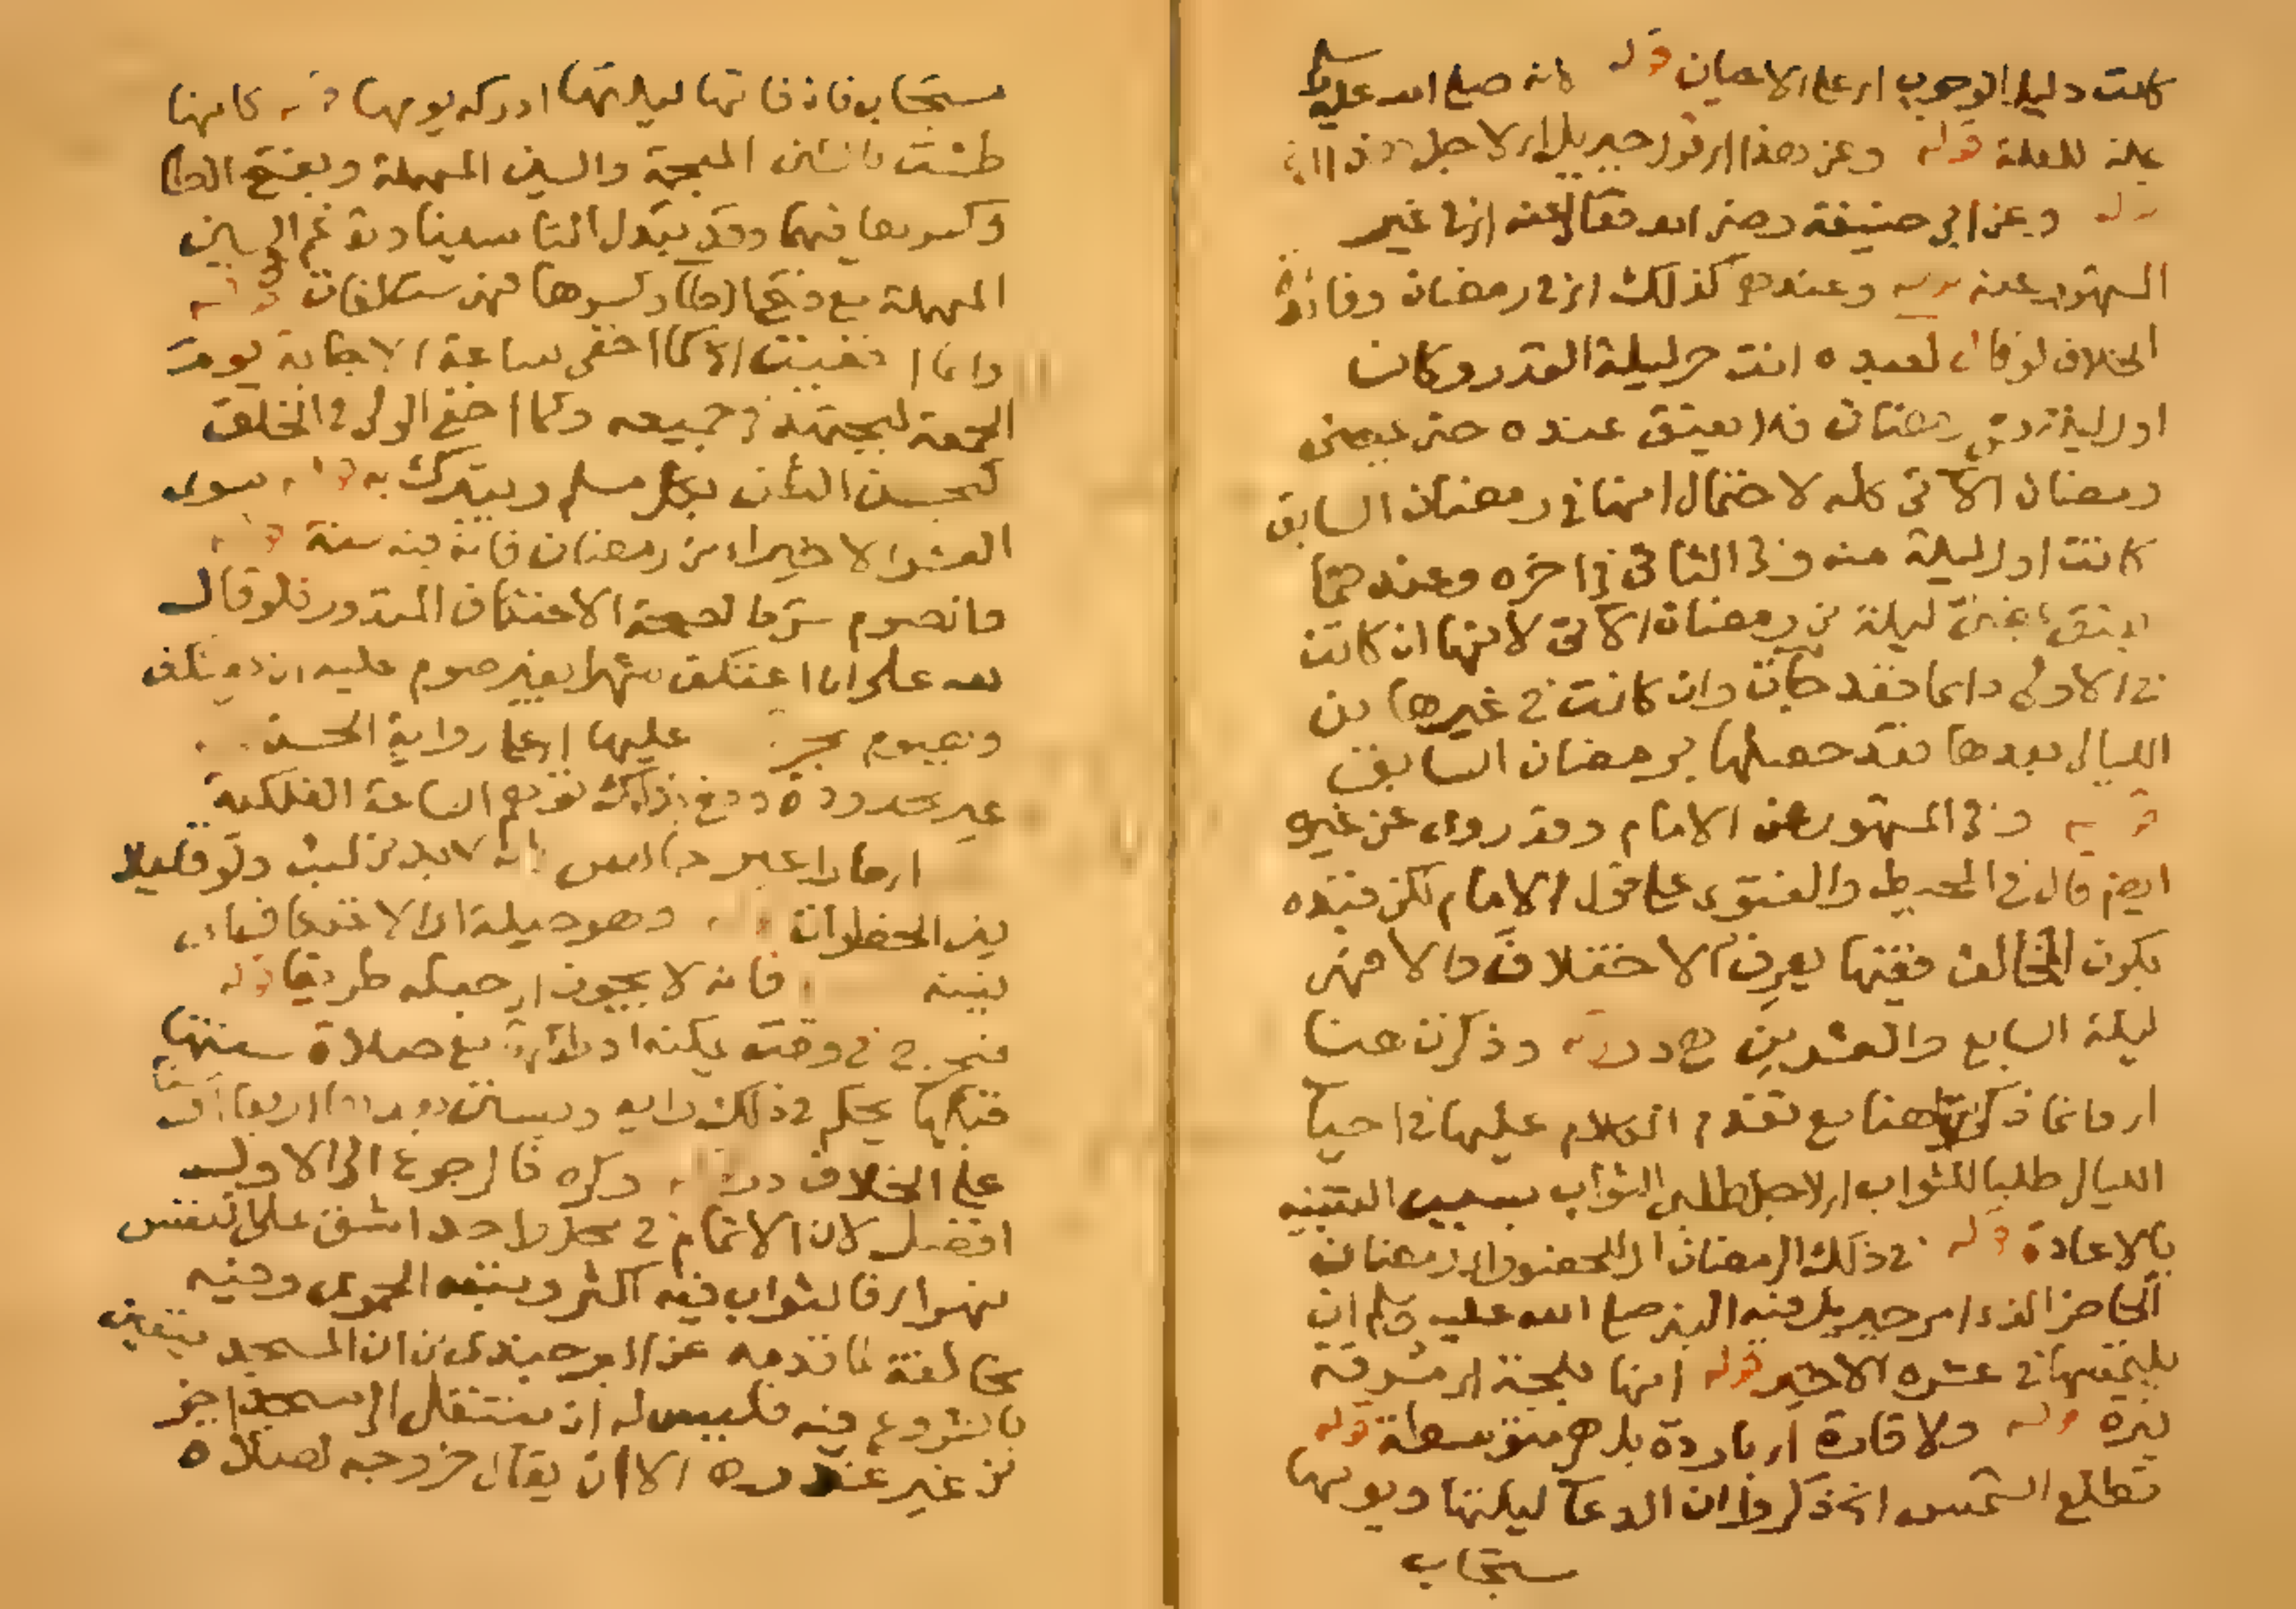 كانت دليل الوجوب اي على الاعيان قوله لانه صلى الله عليه وسلم
علة للعلة قوله وعن هذا اي قول جبريل اي لاجل
قوله وعن ابي حنيفة رضي الله تعالى عنه انها غير
المشهور عنه قوله وعندهم كذلك اي في رمضان وفائدة
الخلاف لو قال لعبده انت حر ليلة القدر وكان
اول ليلة رمضان فلا يعتق عنده حتى يمضي
رمضان الآتي كله لاحتمال انها في رمضان السابق
كانت اول ليلة منه وفي الثاني في اخره وعندهما
يعتق بمضي ليلة من رمضان الآتي لانها ان كانت
في الاولى دايما فقد جآت وان كانت في غيرها من
الليالي بعدها فقد حصلها برمضان السابق
قوله وفي المشهور عن الامام وقد روى عن غيره
ايضا قال في المحيط والفتوى على قول الامام لكن قيده
بكون الحالف فقيها يعرف الاختلاف والا فهي
ليلة السابع والعشرين ح در قوله وذكرت هنا
اي وانما ذكرتها هنا مع تقدم الكلام عليها في احيآ
الليالي طلبا للثواب اي لاجل طلبي الثواب بسبب التنبيه
بالاعادة قوله في ذلك الرمضان ال للحضور اي رمضان
الحاضر الذي امر جبريل فيه النبي صلى الله عليه وسلم ان
يلتمسها في عشره الاخير قوله انها بلجة اي مشرقة
نيرة قوله ولا قارة اي باردة بل هي متوسطة قوله
تطلع الشمس الخ ذكروا ان الدعآ ليلتها ويومها
مستجاب
مستجاب فان فاتها ليلتها ادركه يومها قوله كانها
طشت بالشين المعجمة والسين المهملة وبفتح الطا
وكسرها فيهما وقد يبدل التا سينا وتدغم في السين
المهملة مع فتح الطا وكسرها فهي ست لغات قوله
وانما اخفيت الخ كما اخفى ساعة الاجابة يوم
الجمعة ليجتهد في جميعه وكما اخفى الولي في الخلق
ليحسن الظن بكل مسلم ويتبرك به قوله سوى
العشر الاخير اي من رمضان فانه فيه سنة قوله
والصوم شرط لصحة الاعتكاف المنذور فلو قال
لله علي ان اعتكف شهرا بغير صوم عليه ان يعتكف
ويصوم بحر عليها اي على رواية الحسن
غير محدودة دفع بذلك توهم الساعة الفلكية
اي مارا غير جالس لانه لا بد من لبث ولو قليلا
بين الخطوات قوله وهو حيلة
بنية فانه لا يجوز اي جعله طريقا قوله
فيخرج في وقت يمكنه ادراكها مع صلاة سنتها
قبلها يحكم في ذلك رايه ويستن بعدها اربعا او ستا
على الخلاف در قوله وكره فالرجوع الى الاول
افضل لان الاتمام في محل واحد اشق على النفس
نهر اي فالثواب فيه اكثر وبينه الحموي وفيه
مخالفة لما قدمه عن البرجندي من ان المسجد يتعين
بالشروع فيه فليس له ان ينتقل الى مسجد اخر
من غير عذر الا ان يقال خروجه لصلاة